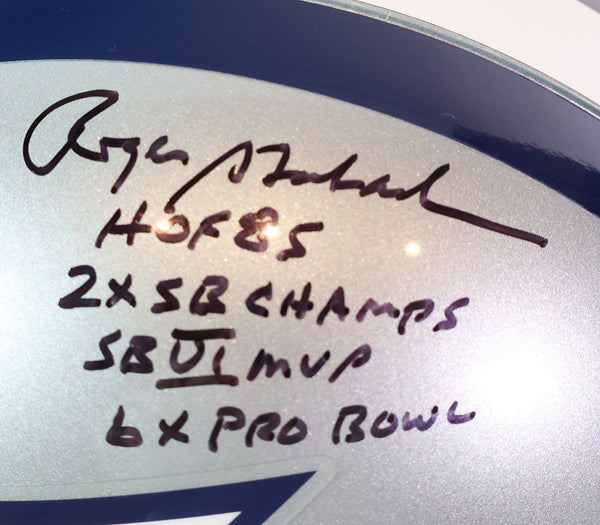 Roger Staubach
HOF 85
2X SB CHAMPS
SB VI MVP
6X PRO BOWL